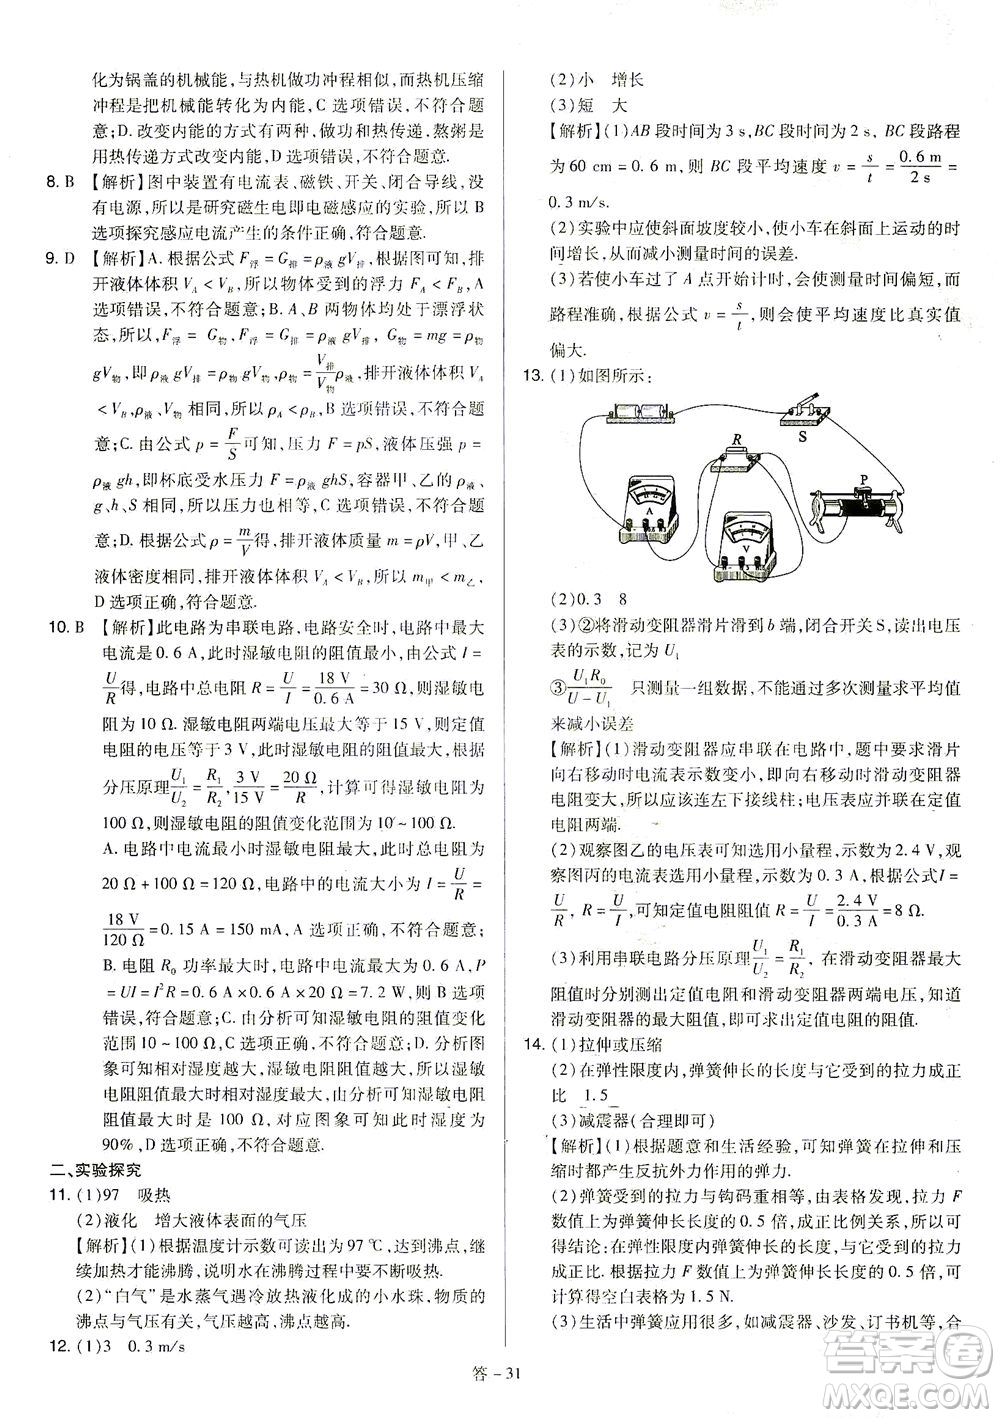 化为锅盖的机械能,与热机做功冲程相似,而热机压缩
冲程是把机械能转化为内能,C 选项错误,不符合题
意;D. 改变内能的方式有两种,做功和热传递.熬粥是
用热传递方式改变内能,D 选项错误,不符合题意.
8. B 【解析】图中装置有电流表、磁铁、开关、闭合导线,没
有电源,所以是研究磁生电即电磁感应的实验,所以 B
选项探究感应电流产生的条件正确,符合题意.
9. D 【解析】A. 根据公式 F浮 = G排 = ρ液 gV排可知,排
开液体体积 VA < VB,所以物体受到的浮力 FA < FB,A
选项错误,不符合题意;B. A、B 两物体均处于漂浮状
态,所以 F浮 = F物,F浮 = G排 = ρ液 gV排、G物 = mg = ρ物
gV物,即 ρ液 gV排 = ρ物 gV物,ρ物 = V排/V物 ρ液,排开液体体积 VA
< VB,ρ液、V物 相同,所以 ρA < ρB,B 选项错误,不符合题
意;C. 由公式 p = F/S 可知,压力 F = pS,液体压强 p =
ρ液 gh,即杯底受水压力 F = ρ液 ghS,容器甲、乙的 ρ液、
g、h、S 相同,所以压力也相等,C 选项错误,不符合题
意;D. 根据公式 ρ = m/V 得,排开液体质量 m = ρV,甲、乙
液体密度相同,排开液体体积 VA < VB,所以 m甲 < m乙,
D 选项正确,符合题意.
10. B 【解析】此电路为串联电路,电路安全时,电路中最大
电流是 0.6 A,此时湿敏电阻的阻值最小,由公式 I =
U/R 得,电路中总电阻 R = U/I = 18 V/0.6 A = 30 Ω,则湿敏电
阻为 10 Ω.湿敏电阻两端电压最大等于 15 V,则定值
电阻的电压等于 3 V,此时湿敏电阻的阻值最大,根据
分压原理 U1/U2 = R1/R2, 3 V/15 V = 20 Ω/R,计算可得最大阻值为
100 Ω,则湿敏电阻的阻值变化范围为 10~100 Ω.
A. 电路中电流最小时湿敏电阻最大,此时总电阻为
20 Ω + 100 Ω = 120 Ω,电路中的电流大小为 I = U/R =
18 V/120 Ω = 0.15 A = 150 mA,A 选项正确,不符合题意;
B. 电阻 R0 功率最大时,电路中电流最大为 0.6 A,P
= UI = I²R = 0.6 A×0.6 A×20 Ω = 7.2 W,B 选项
错误,符合题意;C. 由分析可知湿敏电阻的阻值变化
范围为 10~100 Ω,C 选项正确,不符合题意;D. 根据图
象可知电阻越大,相对湿度越大,所以当湿敏电阻
阻值最大时相对湿度最大,由分析可知湿敏电阻
阻值最大为 100 Ω,对应图象可知最大相对湿度为
90%,D 选项正确,不符合题意.
二、实验探究
11. (1)97 吸热
(2)液化 增大液体表面的气压
【解析】(1)根据温度计示数可读出为 97 ℃,达到沸点,继
续加热才能沸腾,说明水在沸腾过程中要不断吸热.
(2)“白气”是水蒸气遇冷放热液化成的小水珠,物质的
沸点与气压有关,气压越高,沸点越高.
12. (1)3 0.3 m/s
(2)小 增长
(3)短 大
【解析】(1)AB 段时间为 3 s,BC 段时间为 2 s,BC 段路程
为 60 cm = 0.6 m,则 BC 段平均速度 v = s/t = 0.6 m/2 s =
0.3 m/s.
(2)实验中应使斜面坡度较小,使小车在斜面上运动的时
间增长,从而减小测量时间的误差.
(3)若使小车过了 A 点开始计时,会使测量时间偏短,而
路程准确,根据公式 v = s/t,则会使平均速度比真实值
偏大.
13. (1)如图所示:
R
S
P
A
V
(2)0.3 8
(3)②将滑动变阻器滑片滑到 b 端,闭合开关 S,读出电压
表的示数,记为 U1
③U1R0/(U - U1) 只测量一组数据,不能通过多次测量求平均值
来减小误差
【解析】(1)滑动变阻器应串联在电路中,题中要求滑片
向右移动时电流表示数变小,即向右移动时滑动变阻器
电阻变大,所以应该连左下接线柱;电压表应并联在定值
电阻两端.
(2)观察图乙的电压表可知选用小量程,示数为 2.4 V,观
察图丙的电流表选用小量程,示数为 0.3 A,根据公式 I =
U/R, R = U/I,可知定值电阻阻值为 R = U/I = 2.4 V/0.3 A = 8 Ω.
(3)利用串联电路分压原理 U1/U2 = R1/R2,在滑动变阻器最大
阻值时分别测出定值电阻和滑动变阻器两端电压,已知
滑动变阻器的最大阻值,即可求出定值电阻的阻值.
14. (1)拉伸或压缩
(2)在弹性限度内,弹簧伸长的长度与受到的拉力成正
比 1.5
(3)减震器(合理即可)
【解析】(1)根据题意和生活经验,可知弹簧在拉伸和压
缩时都产生反抗外力作用的弹力.
(2)弹簧受到的拉力与钩码重相等,由表格发现,拉力 F
数值上为弹簧伸长长度的 0.5 倍,成正比例关系,所以可
得结论:在弹性限度内,弹簧伸长的长度,与弹簧受到的
拉力成正比,根据拉力 F 数值上为伸长长度的 0.5 倍,可
计算得空白表格为 1.5 N.
(3)生活中弹簧应用较多,如减震器、沙发、订书机等等.
答 - 31
答案圈
MXQE.COM